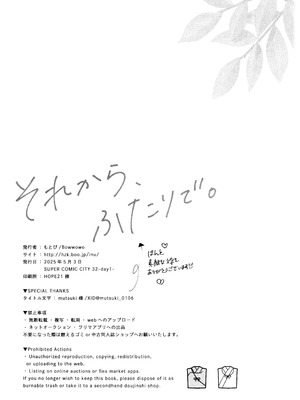 それから、
ふたりで。
発行者：もとぴ/Bowwowo
サイト：http://hzk.boo.jp/inu/
発行日：2025年5月3日
SUPER COMIC CITY 32-day1-
印刷所：HOPE21 様
ほんと
素敵な文字
ありがとうございます!!
▼SPECIAL THANKS
タイトル文字 / mutsuki 様 /XID@mutsuki_0106
▼禁止事項
・ 無断転載・複写・転用・webへのアップロード
・ ネットオークション・フリマアプリへの出品
不要になった際は燃えるゴミor中古同人誌ショップへお願いいたします。
▼Prohibited Actions
・ Unauthorized reproduction, copying, redistribution,
or uploading to the web.
・ Listing on online auctions or flea market apps.
If you no longer wish to keep this book, please dispose of it as
burnable trash or take it to a secondhand doujinshi shop.